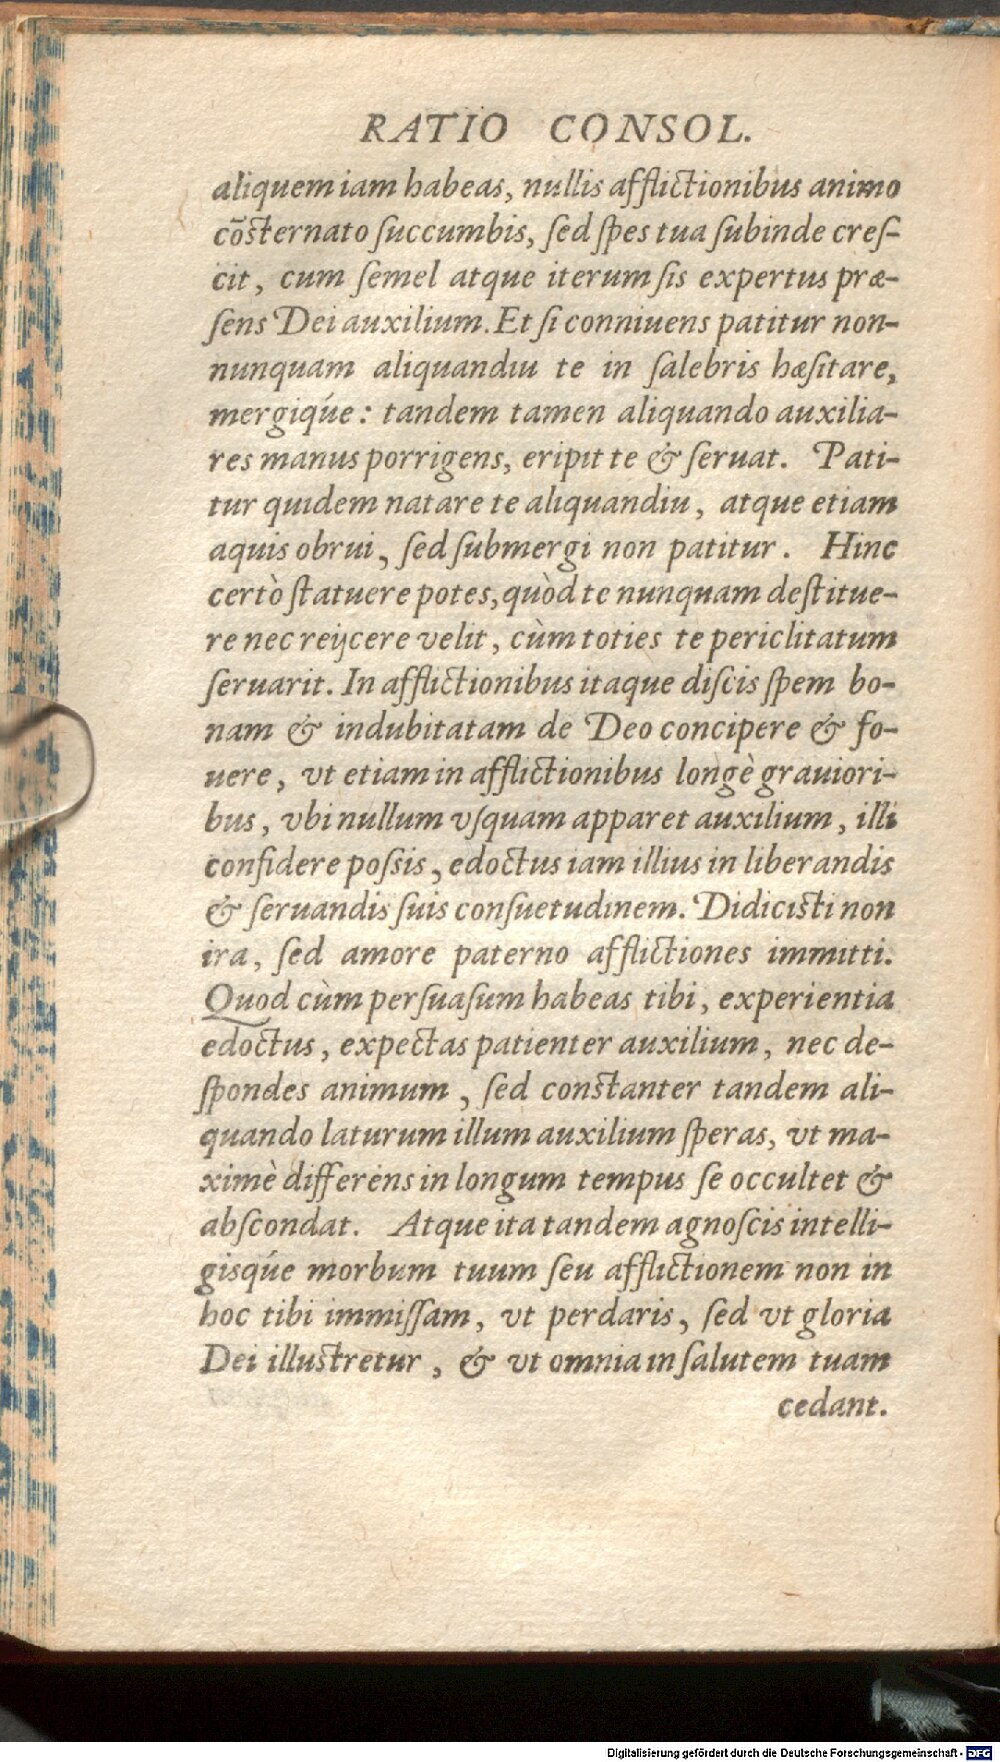 RATIO CONSOL.
aliquem iam habeas, nullis afflictionibus animo
cōsternato ſuccumbis, ſed ſpes tua ſubinde creſ-
cit, cum ſemel atque iterum ſis expertus præ-
ſens Dei auxilium. Et ſi conniuens patitur non-
nunquam aliquandiu te in ſalebris hæſitare,
mergiq́ue: tandem tamen aliquando auxilia-
res manus porrigens, eripit te & ſeruat. Pati-
tur quidem natare te aliquandiu, atque etiam
aquis obrui, ſed ſubmergi non patitur. Hinc
certò ſtatuere potes, quòd te nunquam deſtitue-
re nec reijcere velit, cùm toties te periclitatum
ſeruarit. In afflictionibus itaque diſcis ſpem bo-
nam & indubitatam de Deo concipere & fo-
uere, vt etiam in afflictionibus longè grauiori-
bus, vbi nullum vſquam apparet auxilium, illi
confidere poſsis, edoctus iam illius in liberandis
& ſeruandis ſuis conſuetudinem. Didicisti non
ira, ſed amore paterno afflictiones immitti.
Quod cùm perſuaſum habeas tibi, experientia
edoctus, expectas patienter auxilium, nec de-
ſpondes animum, ſed constanter tandem ali-
quando laturum illum auxilium ſperas, vt ma-
ximè differens in longum tempus ſe occultet &
abſcondat. Atque ita tandem agnoſcis intelli-
giſq́ue morbum tuum ſeu afflictionem non in
hoc tibi immiſſam, vt perdaris, ſed vt gloria
Dei illustretur, & vt omnia in ſalutem tuam
cedant.
Digitalisierung gefördert durch die Deutsche Forschungsgemeinschaft - DFG